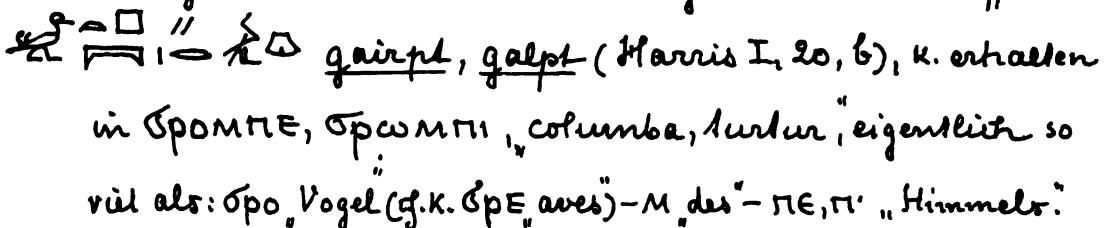 gairpt, galpt (Harris I, 20, b), K. erhalten
in ϭⲣⲟⲙⲡⲉ, ϭⲣⲱⲙⲡⲓ, „columba, turtur“, eigentlich so
viel als: ϭⲣⲟ „Vogel“ (cf. K. ϭⲣⲉ „aves“) - ⲙ „des“ - ⲡⲉ, ⲡ· „Himmels“.